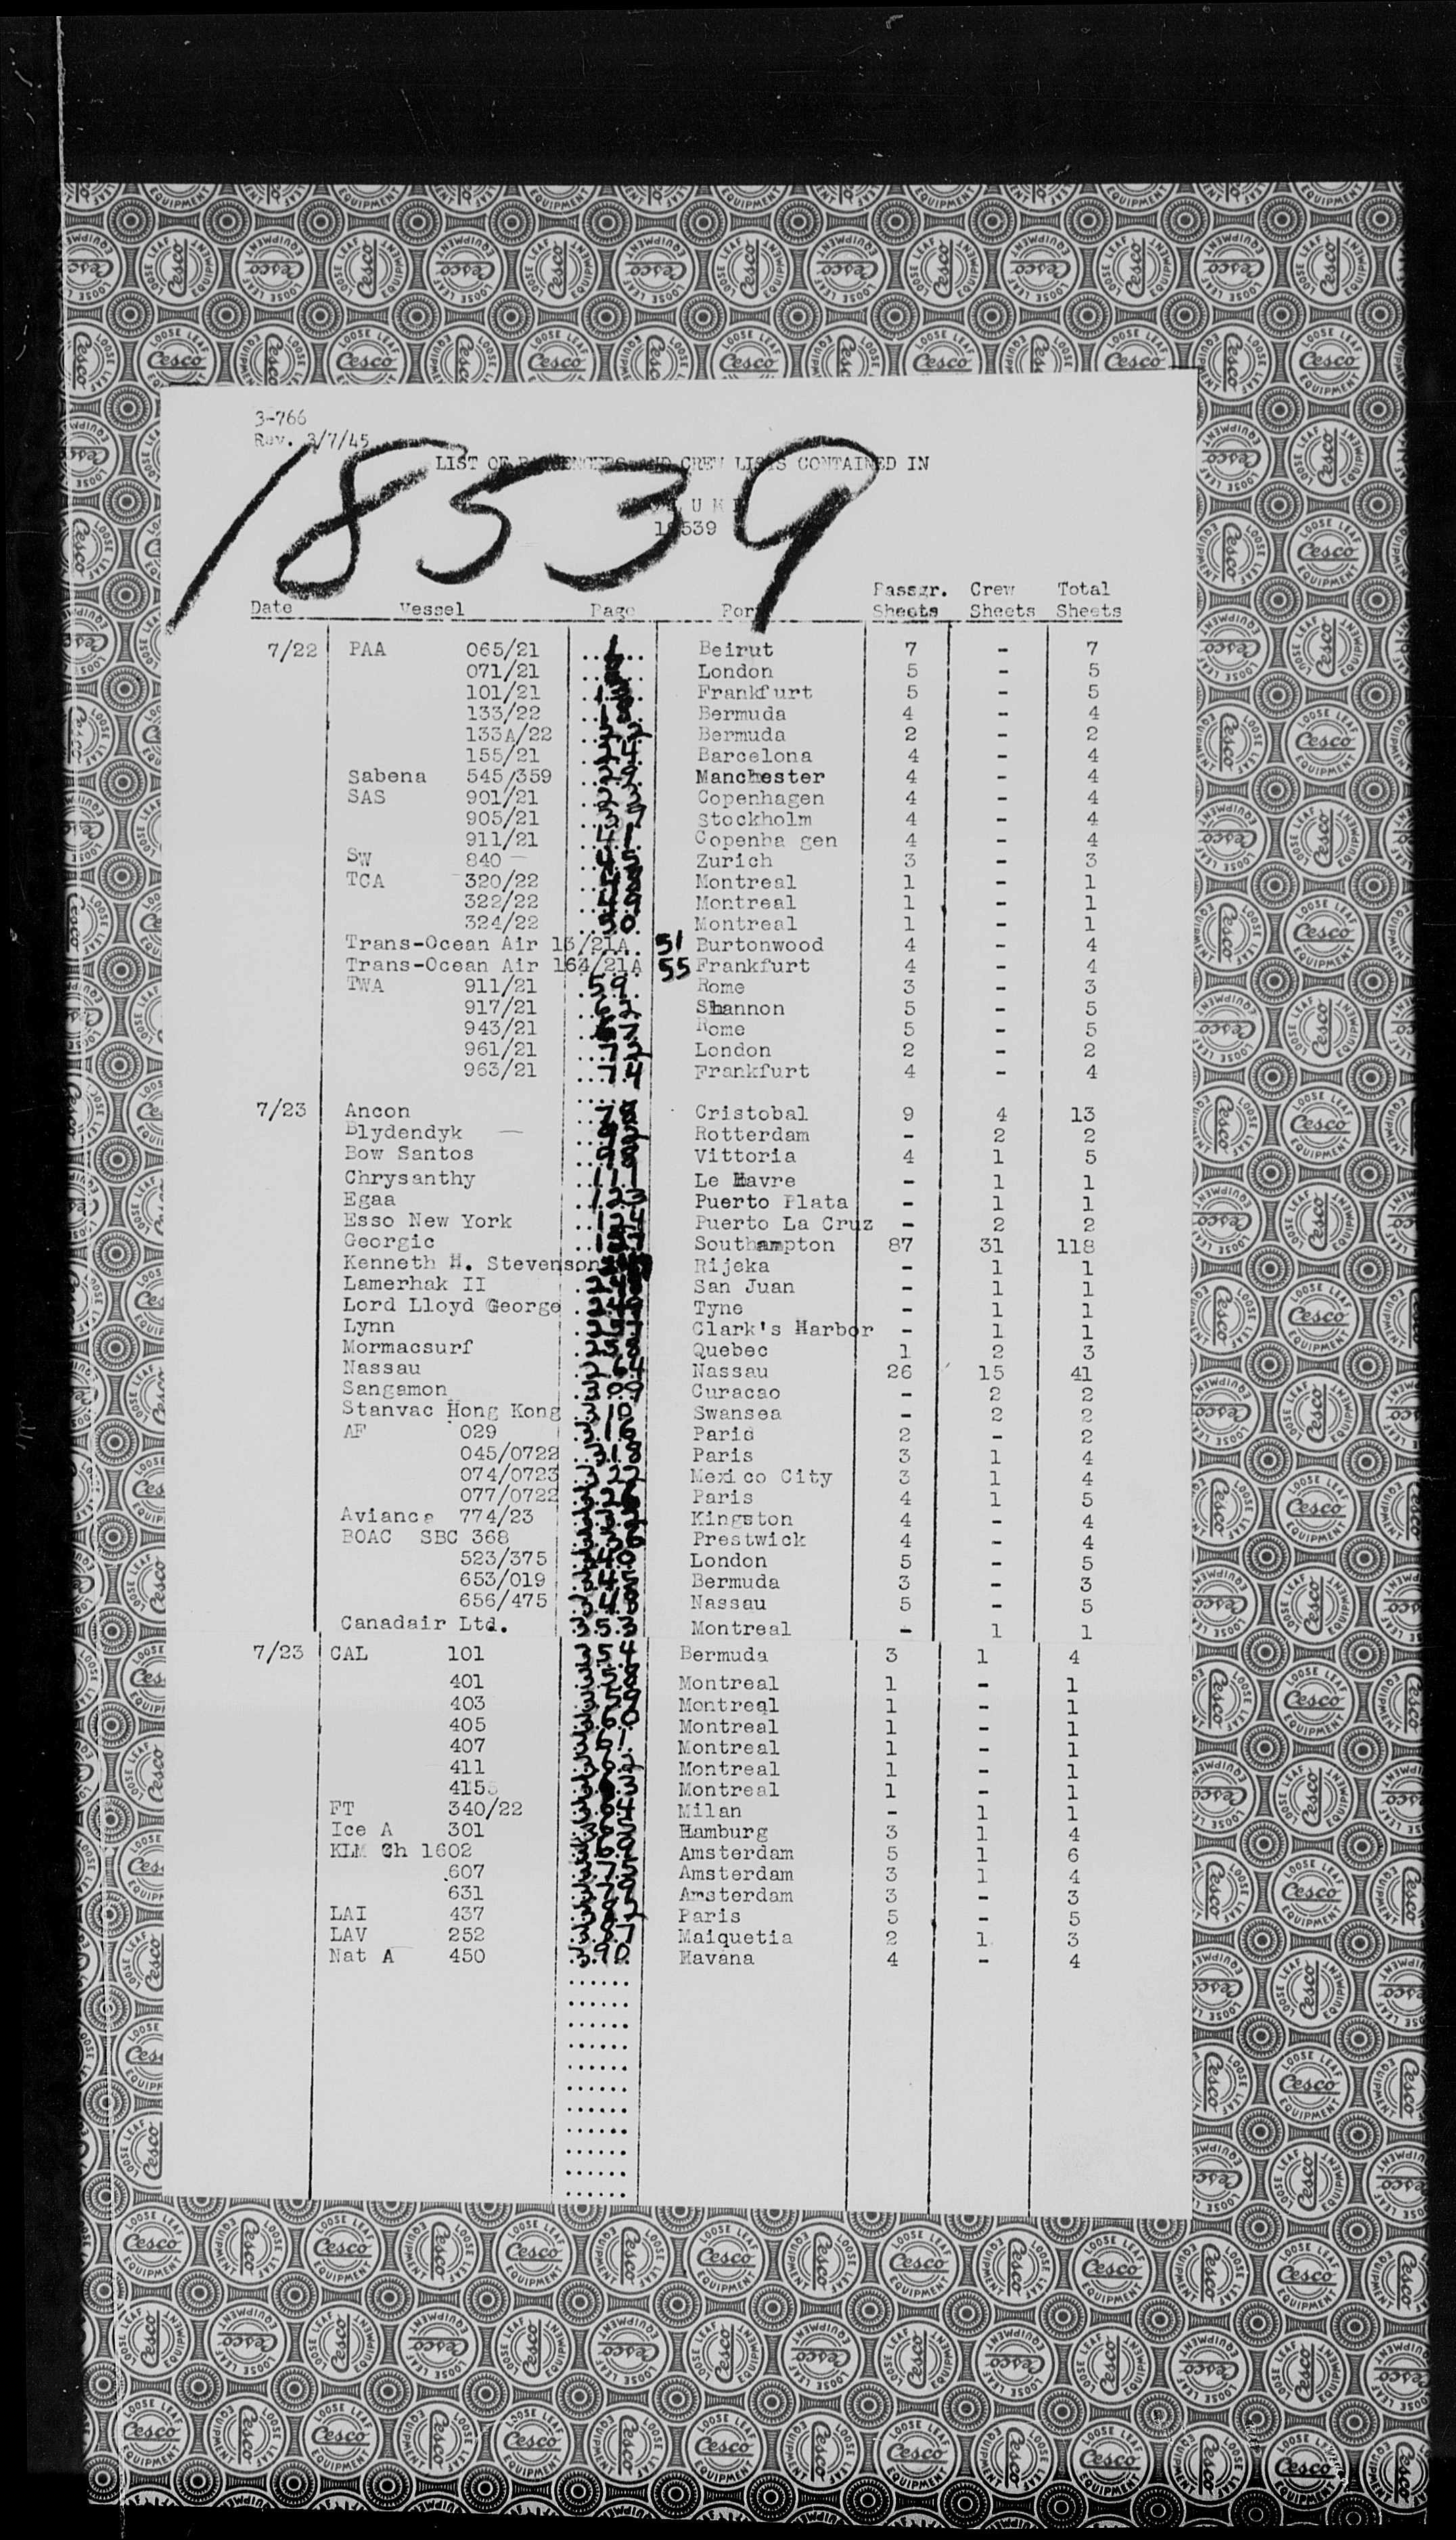 3-766
Rev. 3/7/45
LIST OF PASSENGERS AND CREW LISTS CONTAINED IN
18539
18539
Passgr. Crew Total
Date Vessel Page Port Sheets Sheets Sheets
7/22 PAA 065/21 1 Beirut 7 - 7
071/21 London 5 - 5
101/21 Frankfurt 5 - 5
133/22 Bermuda 4 - 4
133A/22 Bermuda 2 - 2
155/21 Barcelona 4 - 4
Sabena 545/359 Manchester 4 - 4
SAS 901/21 Copenhagen 4 - 4
905/21 Stockholm 4 - 4
911/21 Copenha gen 4 - 4
SW 840 - Zurich 3 - 3
TCA 320/22 Montreal 1 - 1
322/22 Montreal 1 - 1
324/22 50 Montreal 1 - 1
Trans-Ocean Air 13/21A 51 Burtonwood 4 - 4
Trans-Ocean Air 164/21A 55 Frankfurt 4 - 4
TWA 911/21 59 Rome 3 - 3
917/21 62 Shannon 5 - 5
943/21 Rome 5 - 5
961/21 72 London 2 - 2
963/21 74 Frankfurt 4 - 4
7/23 Ancon 78 Cristobal 9 4 13
Blydendyk - Rotterdam - 2 2
Bow Santos Vittoria 4 1 5
Chrysanthy Le Havre - 1 1
Egaa Puerto Plata - 1 1
Esso New York Puerto La Cruz - 2 2
Georgic Southampton 87 31 118
Kenneth H. Stevenson Rijeka - 1 1
Lamerhak II San Juan - 1 1
Lord Lloyd George Tyne - 1 1
Lynn Clark's Harbor - 1 1
Mormacsurf Quebec 1 2 3
Nassau Nassau 26 15 41
Sangamon Curacao - 2 2
Stanvac Hong Kong Swansea - 2 2
AF 029 316 Paris 2 - 2
045/0722 318 Paris 3 1 4
074/0723 322 Mexico City 3 1 4
077/0722 Paris 4 1 5
Avianca 774/23 Kingston 4 - 4
BOAC SBC 368 Prestwick 4 - 4
523/375 340 London 5 - 5
653/019 345 Bermuda 3 - 3
656/475 348 Nassau 5 - 5
Canadair Ltd. 353 Montreal - 1 1
7/23 CAL 101 354 Bermuda 3 1 4
401 Montreal 1 - 1
403 Montreal 1 - 1
405 360 Montreal 1 - 1
407 361 Montreal 1 - 1
411 362 Montreal 1 - 1
415 363 Montreal 1 - 1
FT 340/22 364 Milan - 1 1
Ice A 301 Hamburg 3 1 4
KLM Ch 1602 Amsterdam 5 1 6
607 Amsterdam 3 1 4
631 Amsterdam 3 - 3
LAI 437 Paris 5 - 5
LAV 252 Maiquetia 2 1 3
Nat A 450 390 Havana 4 - 4
Cesco
LOOSE LEAF
EQUIPMENT